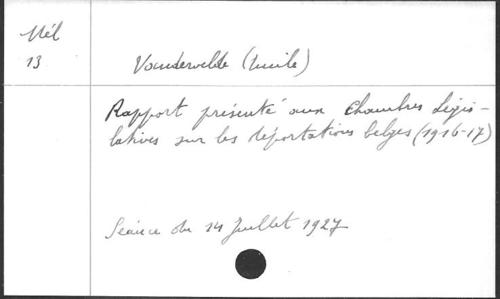 Mél
13
Vandervelde (Emile)
Rapport présenté aux Chambres Légis-
latives sur les déportations belges (1916-17)
Séance du 14 Juillet 1927